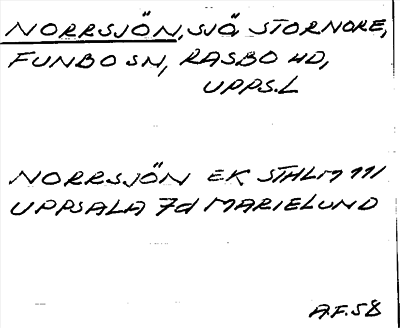 NORRSJÖN, SJÖ STORNORE,
FUNBO SN, RASBO HD,
UPPS.L
NORRSJÖN EK STHLM 111
UPPSALA 7d MARIELUND
A.F.58